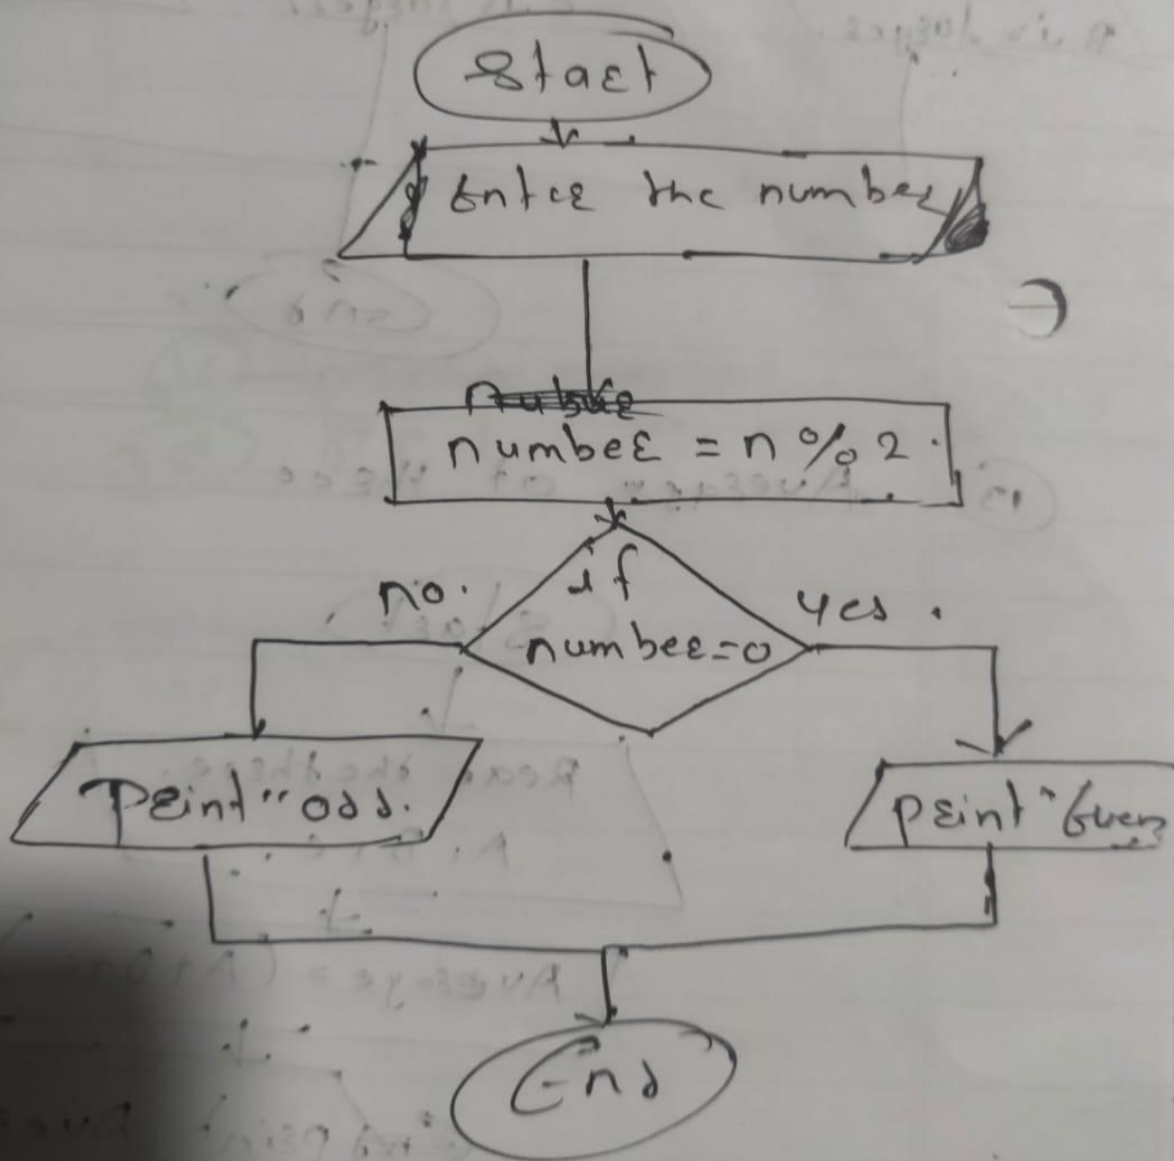 Start
Enter the number
number = n % 2
if
no.
yes.
number=0
Print "odd.
print "Even
End